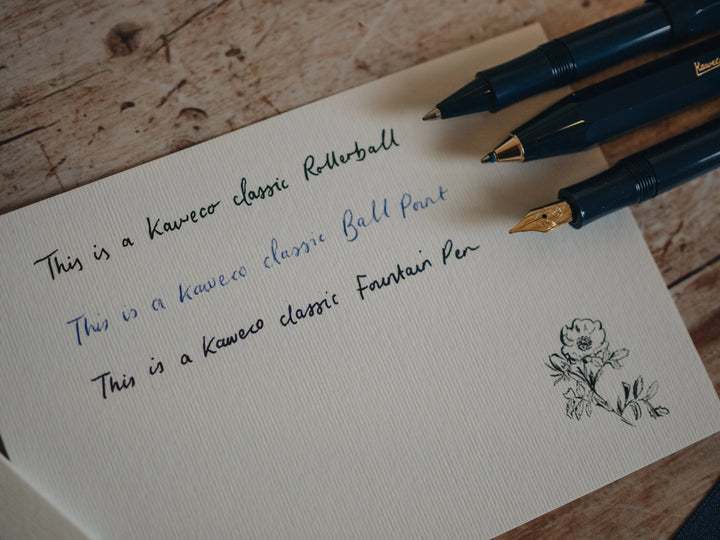 This is a Kaweco classic Rollerball
This is a Kaweco classic Ball Point
This is a Kaweco classic Fountain Pen
Kaweco